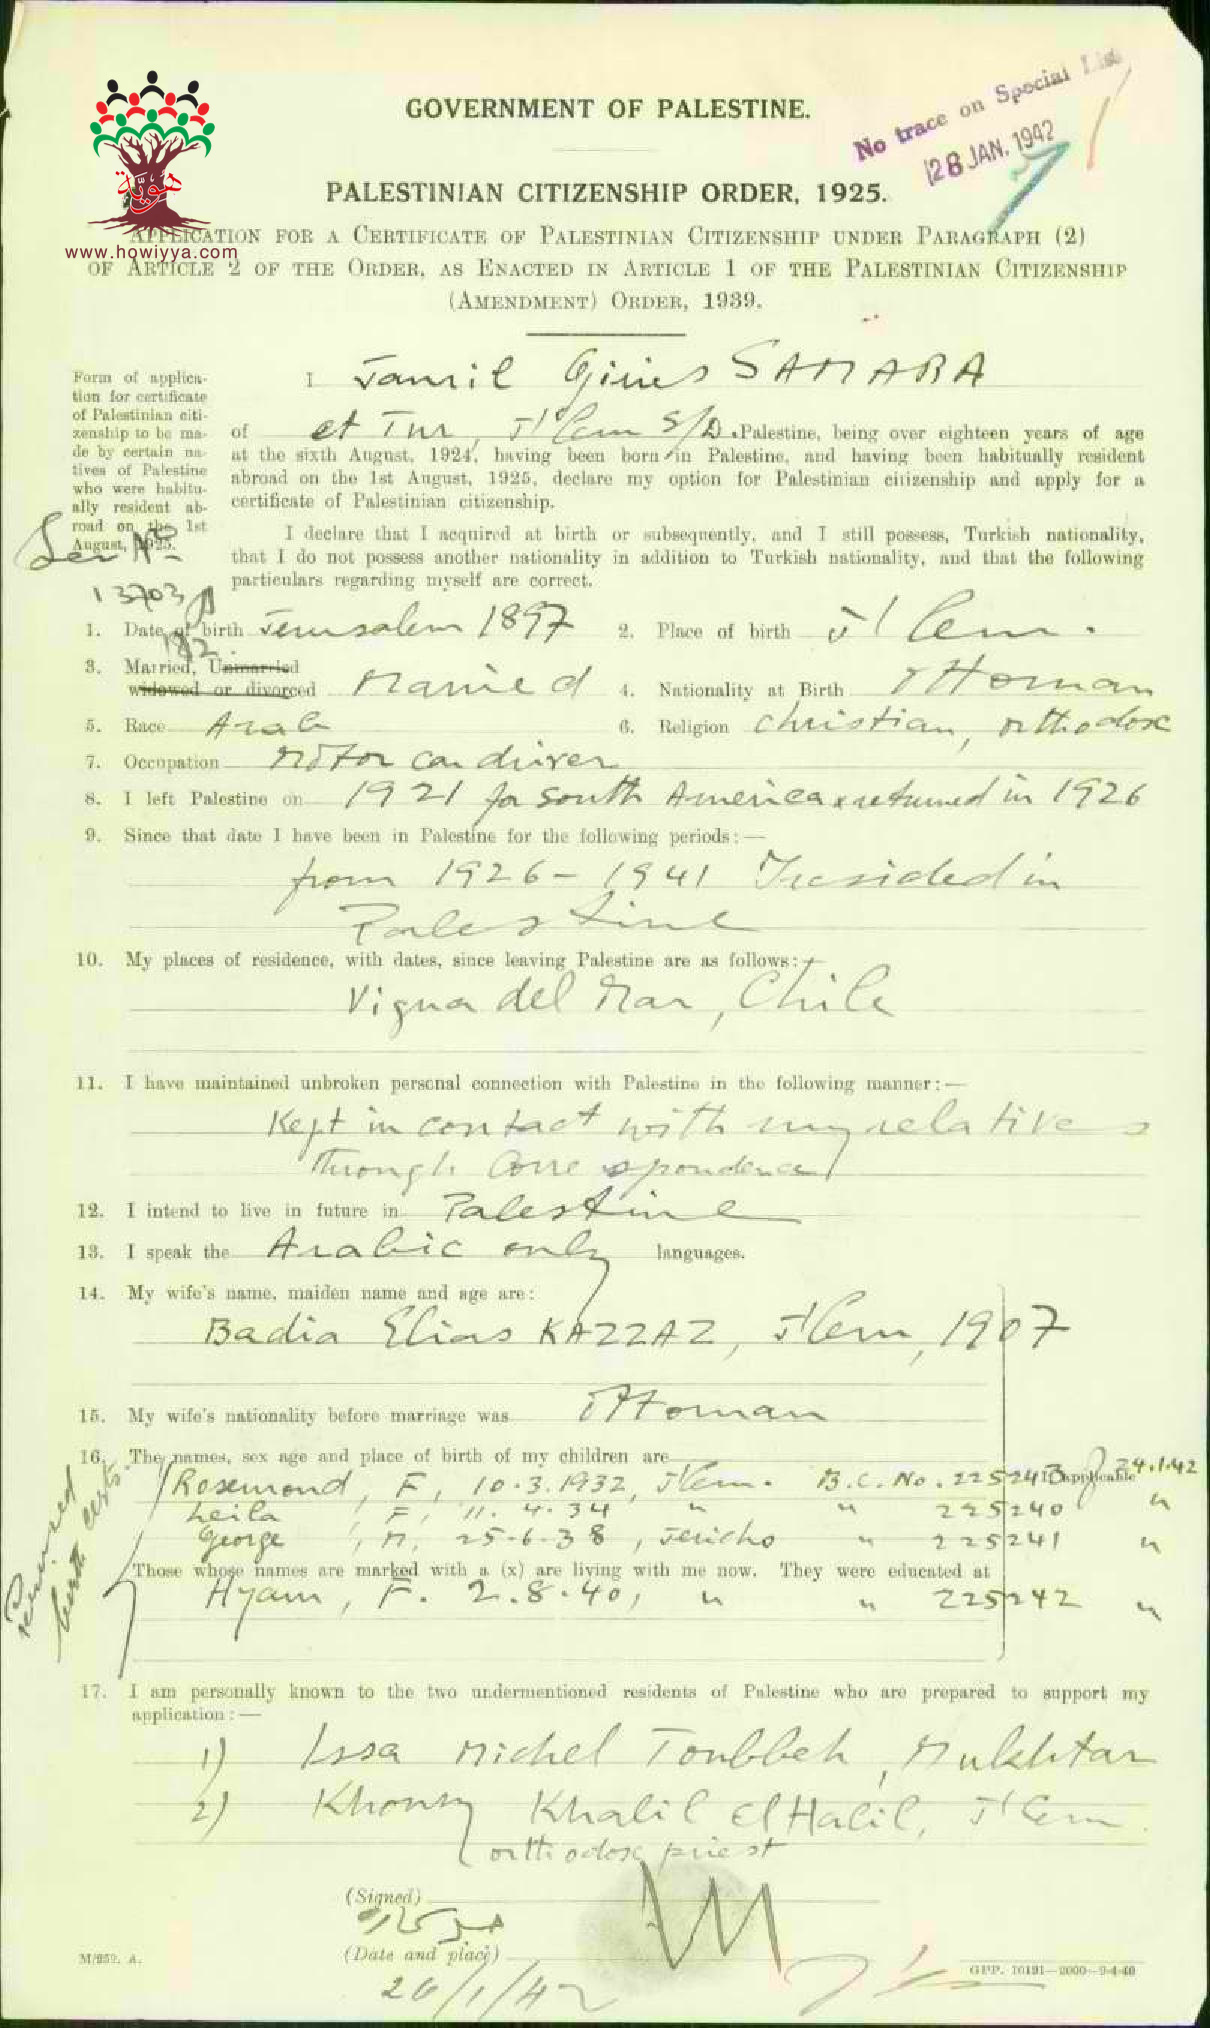 No trace on Special List
28 JAN. 1942
GOVERNMENT OF PALESTINE.
PALESTINIAN CITIZENSHIP ORDER, 1925.
هوية
www.howiyya.com
APPLICATION FOR A CERTIFICATE OF PALESTINIAN CITIZENSHIP UNDER PARAGRAPH (2)
OF ARTICLE 2 OF THE ORDER, AS ENACTED IN ARTICLE 1 OF THE PALESTINIAN CITIZENSHIP
(AMENDMENT) ORDER, 1939.
Form of applica-
tion for certificate
of Palestinian citi-
zenship to be ma-
de by certain na-
tives of Palestine
who were habitu-
ally resident ab-
road on the 1st
August, 1925.
Ser No
13703
I Jamil Giries SAMARA
of et Tur, J'lem S/D. Palestine, being over eighteen years of age
at the sixth August, 1924, having been born in Palestine, and having been habitually resident
abroad on the 1st August, 1925, declare my option for Palestinian citizenship and apply for a
certificate of Palestinian citizenship.
I declare that I acquired at birth or subsequently, and I still possess, Turkish nationality,
that I do not possess another nationality in addition to Turkish nationality, and that the following
particulars regarding myself are correct.
1. Date of birth Jerusalem 1897 2. Place of birth J'lem.
3. Married, Unmarried
widowed or divorced Married 4. Nationality at Birth Ottoman
5. Race Arab 6. Religion Christian, Orthodox
7. Occupation Motor car driver
8. I left Palestine on 1921 for South America & returned in 1926
9. Since that date I have been in Palestine for the following periods:—
from 1926 - 1941 I resided in
Palestine
10. My places of residence, with dates, since leaving Palestine are as follows:—
Vigna del Mar, Chile
11. I have maintained unbroken personal connection with Palestine in the following manner:—
Kept in contact with my relatives
through Correspondence
12. I intend to live in future in Palestine
13. I speak the Arabic only languages.
14. My wife's name, maiden name and age are:
Badia Elias KAZZAZ, J'lem, 1907
15. My wife's nationality before marriage was Ottoman
16. The names, sex age and place of birth of my children are
If applicable
24.1.42
Rosemond, F, 10.3.1932, J'lem. B.C. No. 225243
Leila, F, 11.4.34 " " 225240 "
George, M, 25.6.38, Jericho " 225241 "
Those whose names are marked with a (x) are living with me now. They were educated at
Hyam, F. 2.8.40, " " 225242 "
birth certs
17. I am personally known to the two undermentioned residents of Palestine who are prepared to support my
application:—
1) Issa Michel Toubbeh, Mukhtar
2) Khoury Khalil El Halil, J'lem.
orthodox priest
(Signed)
(Date and place)
26/1/42
M/852. A.
GPP. 10191—2000—9-4-40